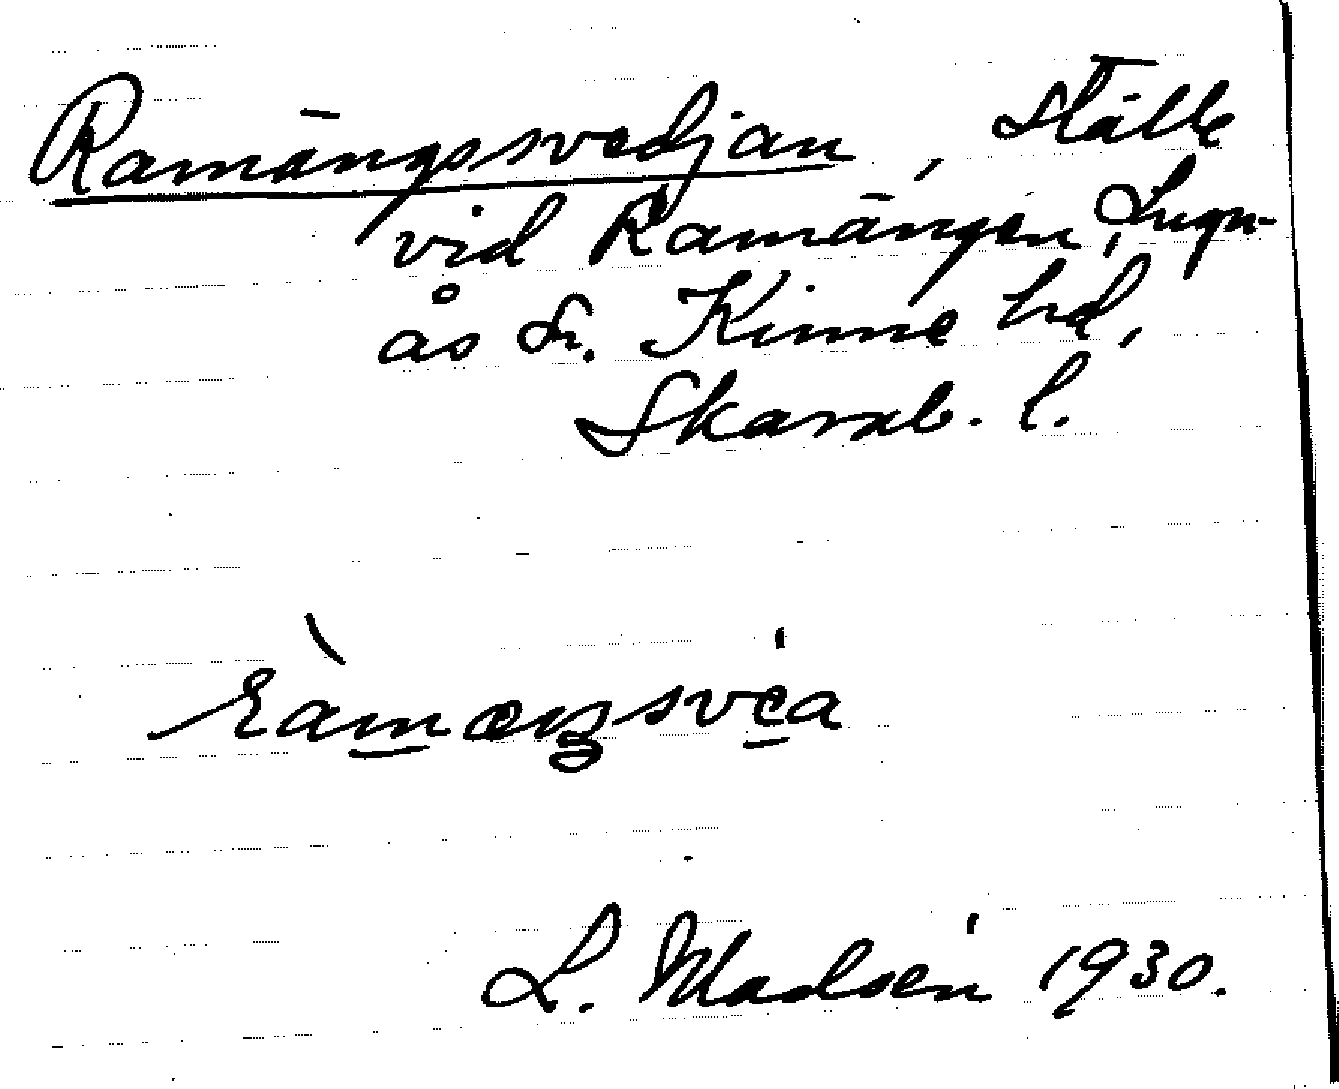 Ramängssvedjan, Ställe
vid Ramängen, Lugn-
ås Sn. Kinne hd,
Skarab. l.
ràmæŋsvéa
L. Madsén 1930.